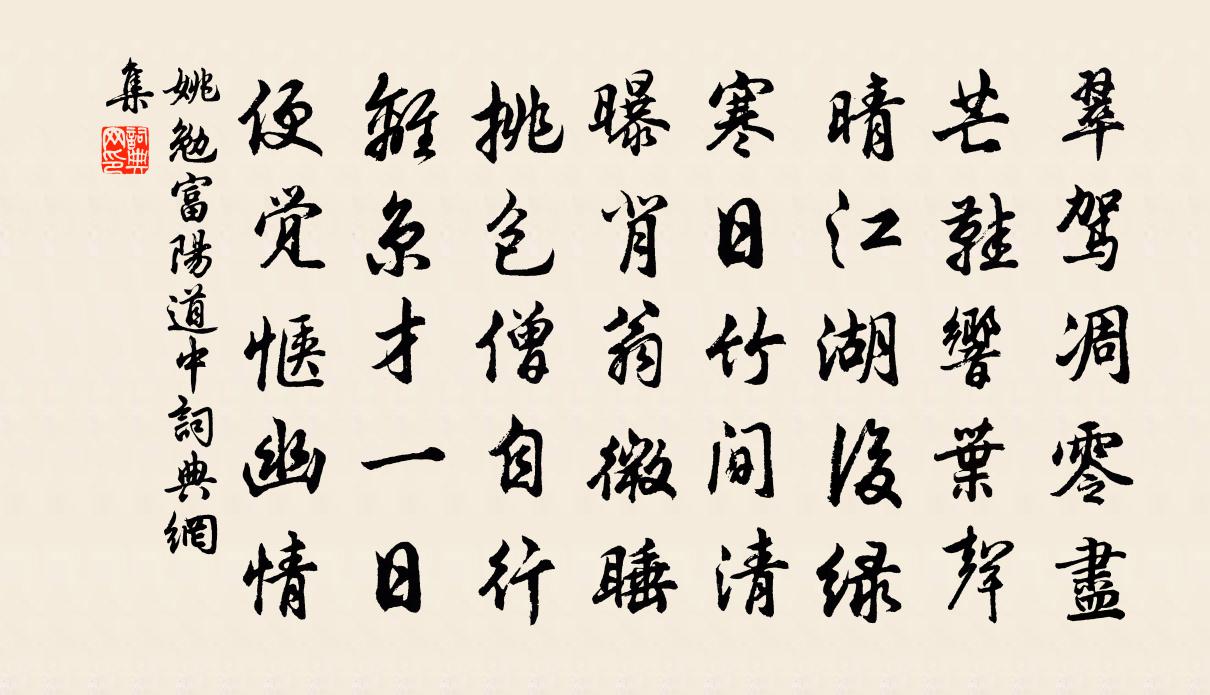 翠驾凋零盡
芒鞋響葉聲
晴江湖後绿
寒日竹间清
曝背翁微睡
挑包僧自行
離京才一日
便觉愜幽情
姚勉富陽道中詞典網
集
詞典
网印